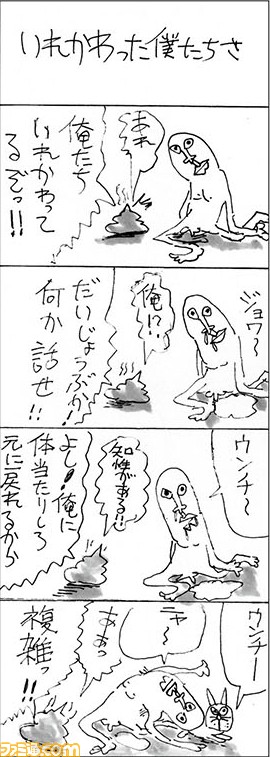 いれかわった僕たちさ
あれ…?
俺たち
いれかわって
るぞっ!!
ジョワ〜
俺!?
だいじょうぶか!
何か話せ!!
ウンチ〜
知性がある!!
よし!俺に
体当たりしろ
元に戻れるから
ウンチー
ニャ〜
ああっ
複雑っ!!
ファミ通.com